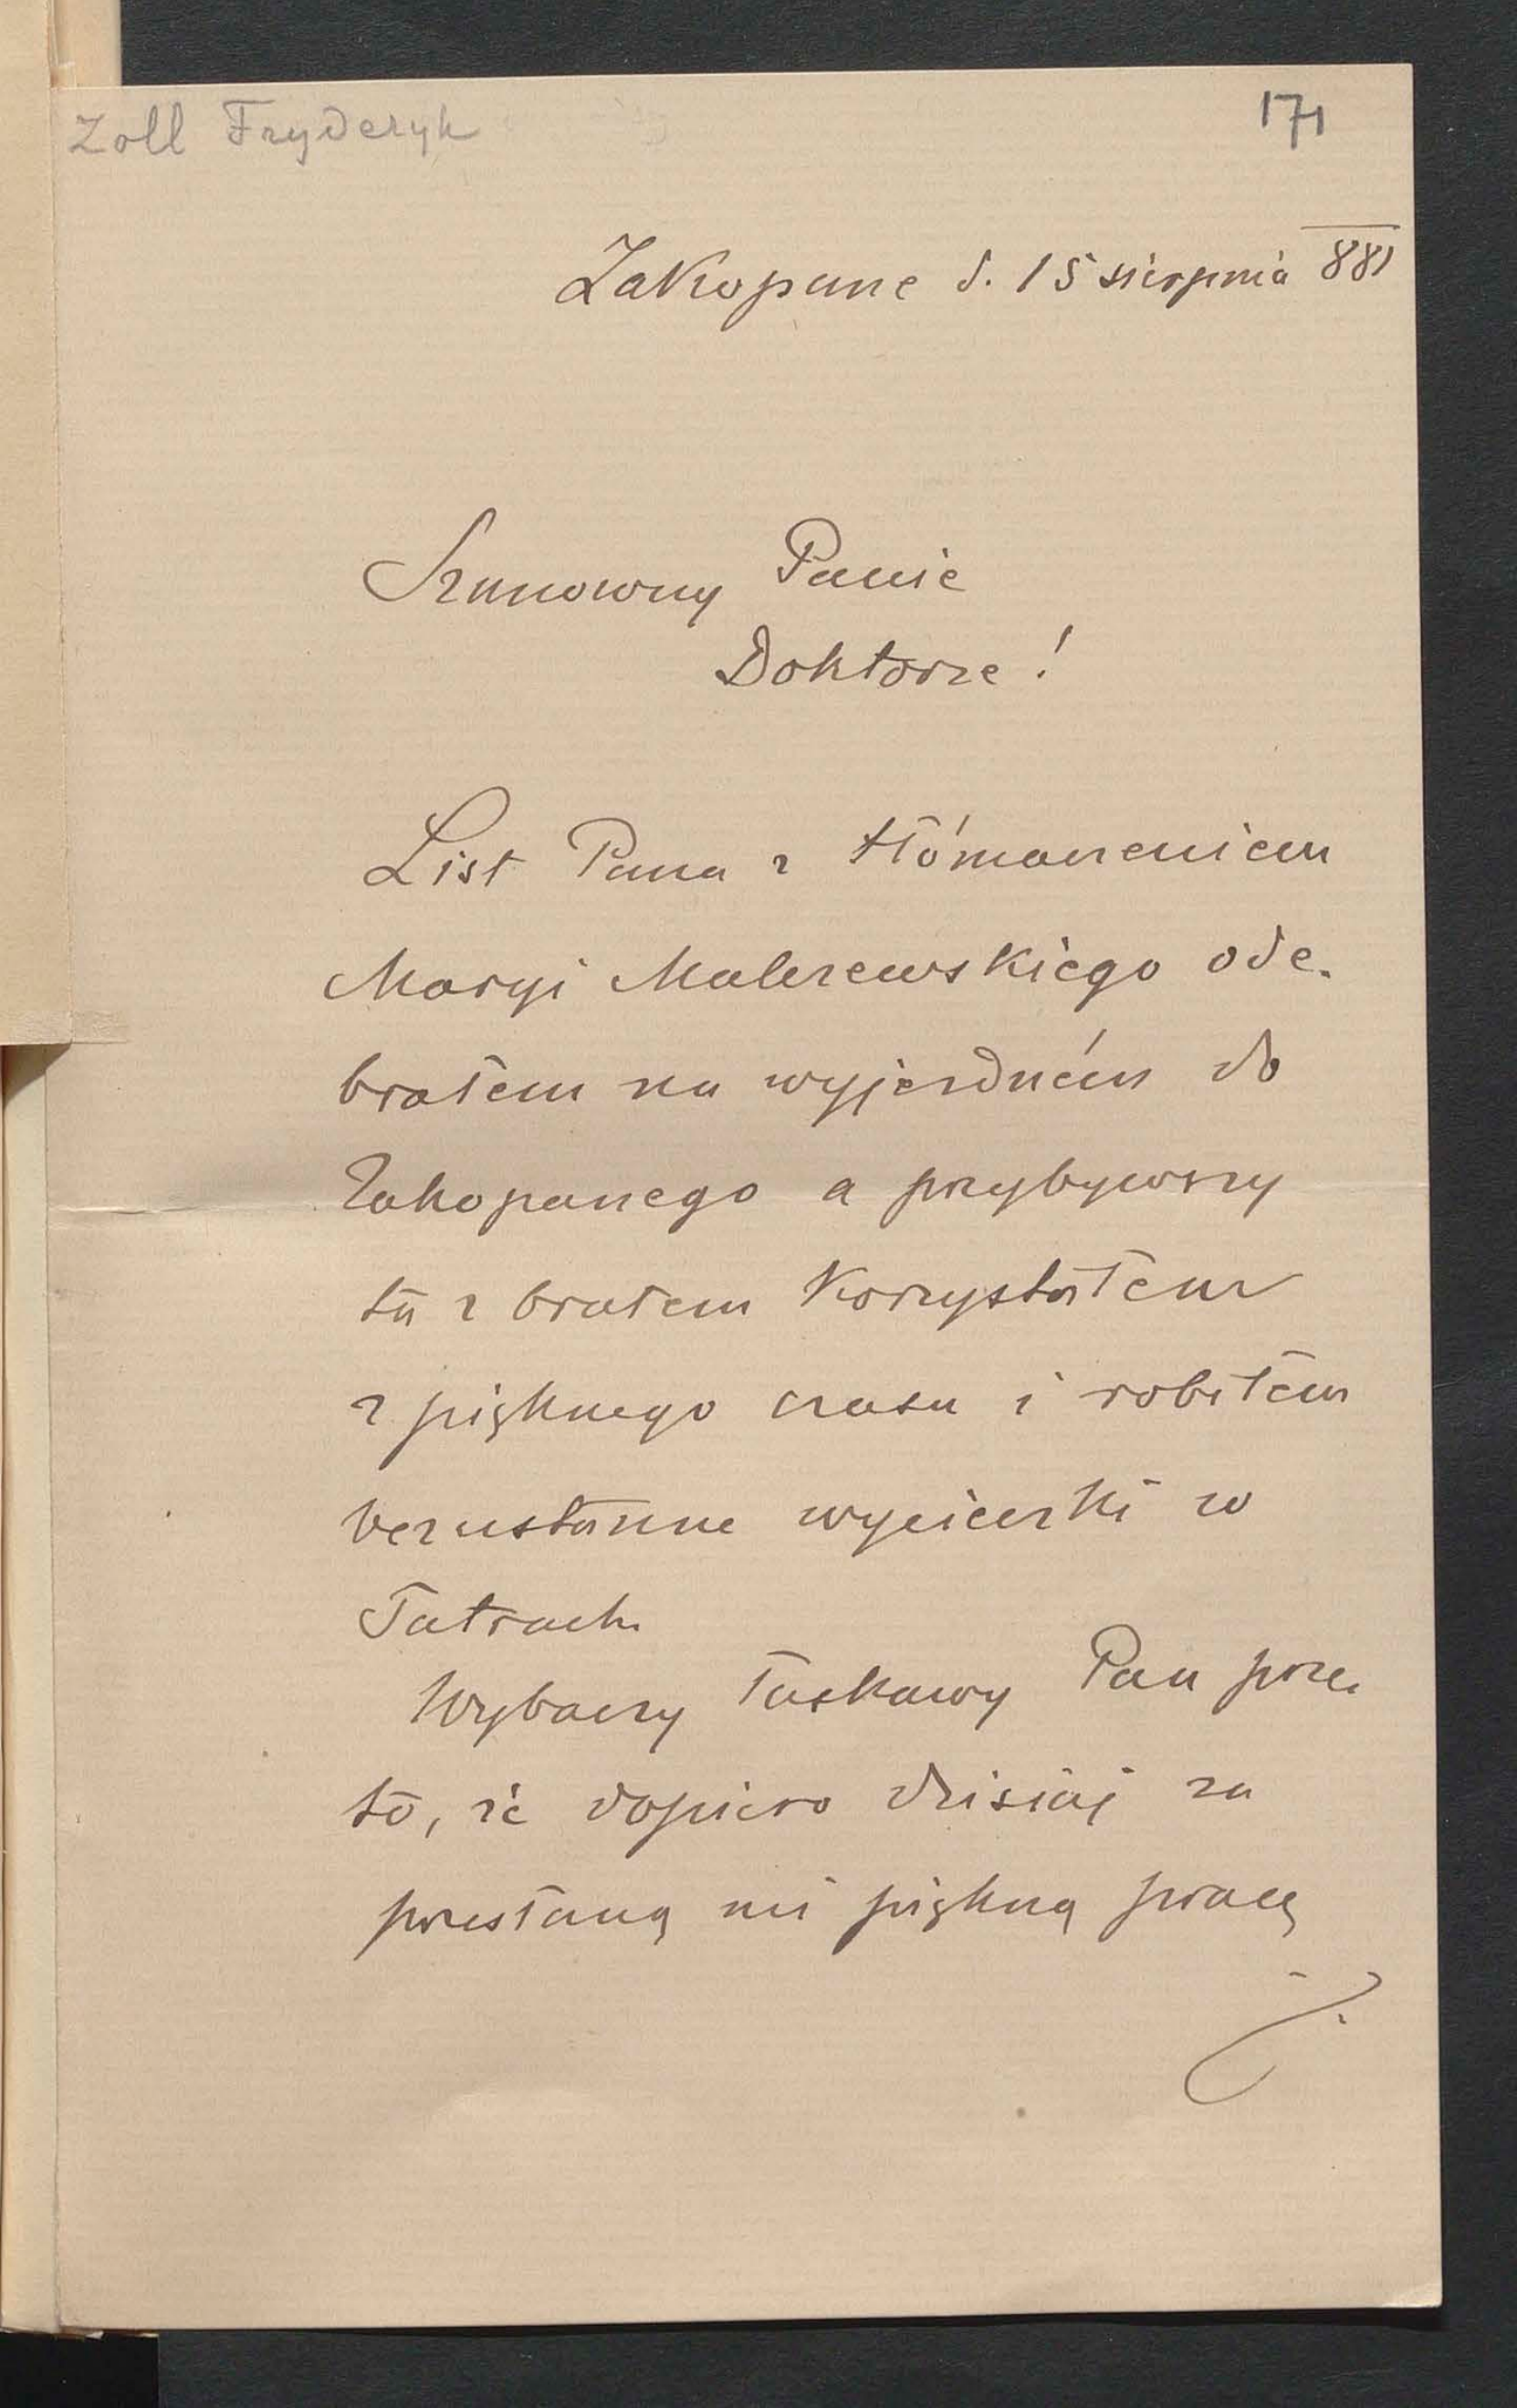 Zoll Fryderyk
171
Zakopane d. 15 sierpnia 881
Szanowny Panie
Doktorze!
List Pana z tłómaczeniem
Maryi Malczewskiego ode-
brałem na wyjezdném do
Zakopanego a przybywszy
tu z bratem korzystałem
z pięknego czasu i robiłem
bezustanne wycieczki w
Tatrach.
Wybaczy Łaskawy Pan prze-
to, że dopiero dzisiaj za
przesłaną mi piękną pracę